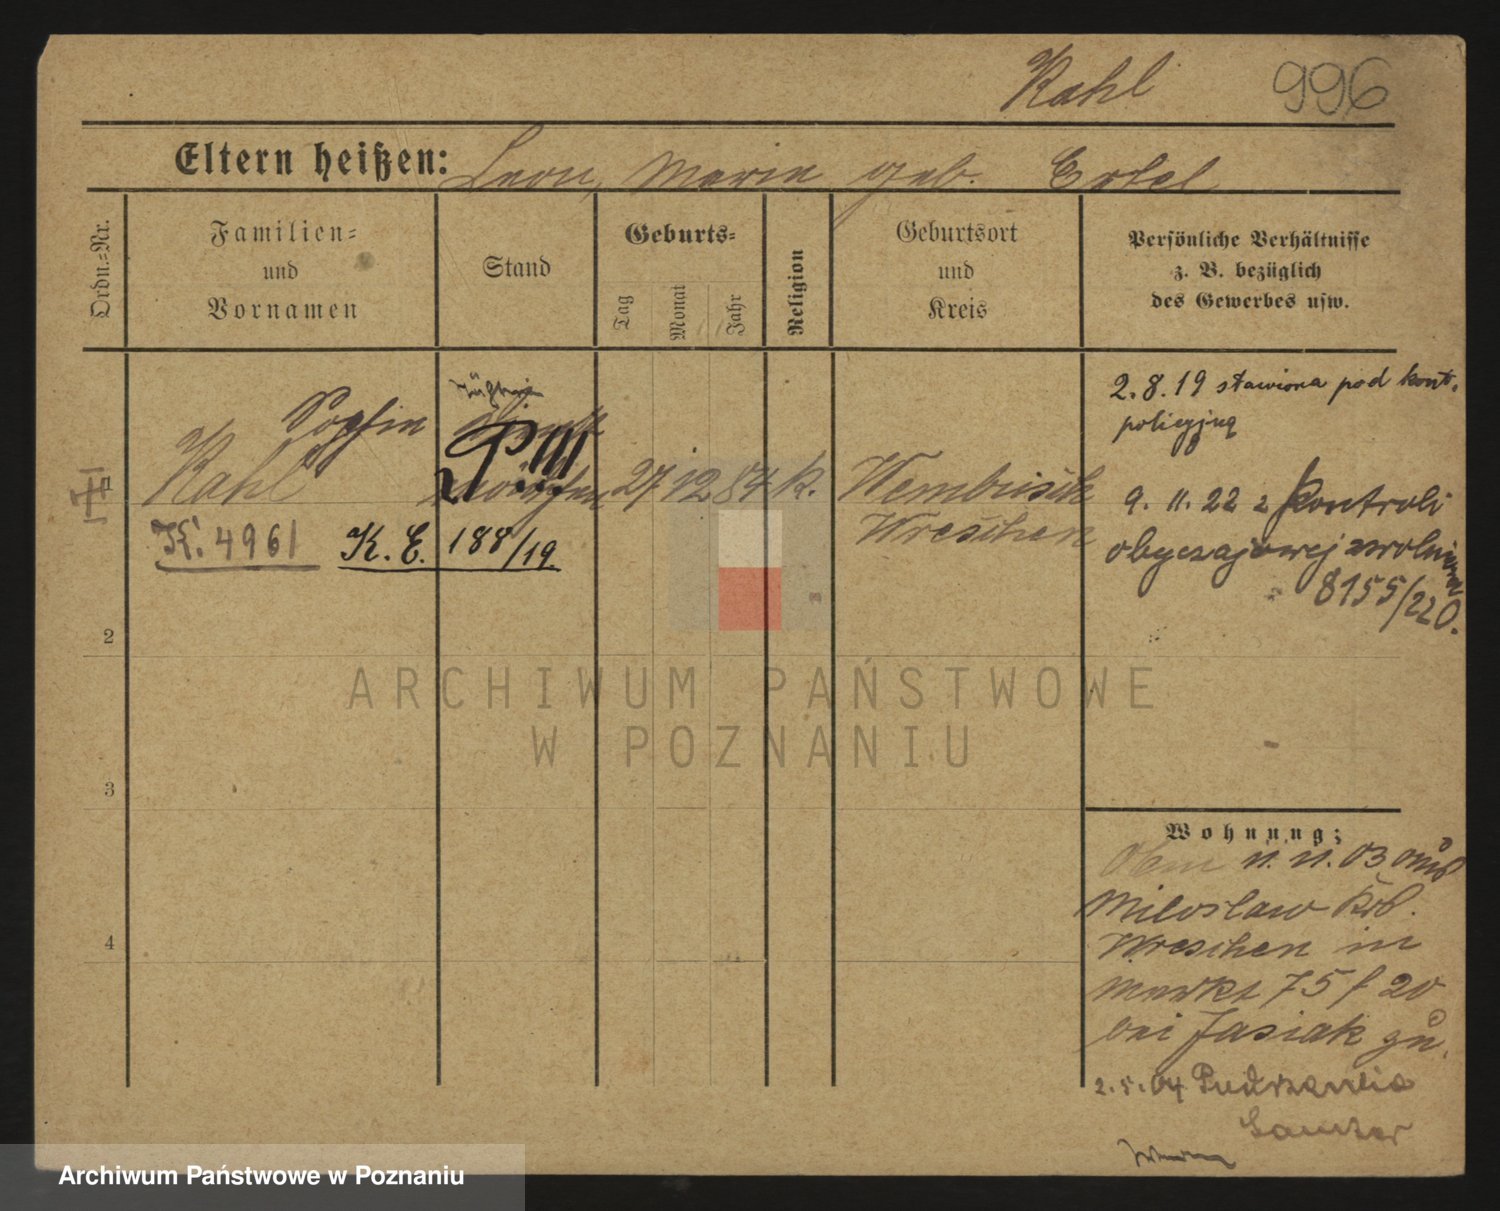 Kahl 996
Eltern heißen: Leon, Marie geb. Ertel
Ordn.-Nr.
Familien-
und
Vornamen
Stand
Geburts-
Tag
Monat
Jahr
Religion
Geburtsort
und
Kreis
Persönliche Verhältnisse
z. B. bezüglich
des Gewerbes usw.
1
Kahl Sophie
27 12 84 k.
Wembusch
Wreschen
K. 4961 K. E. 188/19.
2.8.19 stawiona pod kont.
policyjną
9. 11. 22 z kontroli
obyczajowej zwolniona
8155/220.
2
3
4
Wohnung:
11. 11. 03 aus
Miloslaw Krs.
Wreschen in
Markt 75 f 20
bei Jasiak zu.
2.5.04
ARCHIWUM PAŃSTWOWE
W POZNANIU
Archiwum Państwowe w Poznaniu